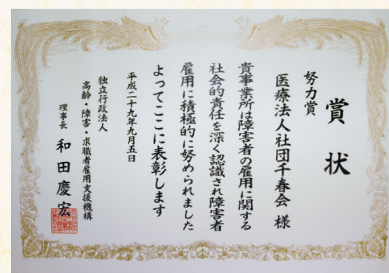 賞状
努力賞
医療法人社団千春会 様
貴事業所は障害者の雇用に関する
社会的責任を深く認識され障害者
雇用に積極的に努められました
よってここに表彰します
平成二十九年九月五日
独立行政法人
高齢・障害・求職者雇用支援機構
理事長 和田慶宏